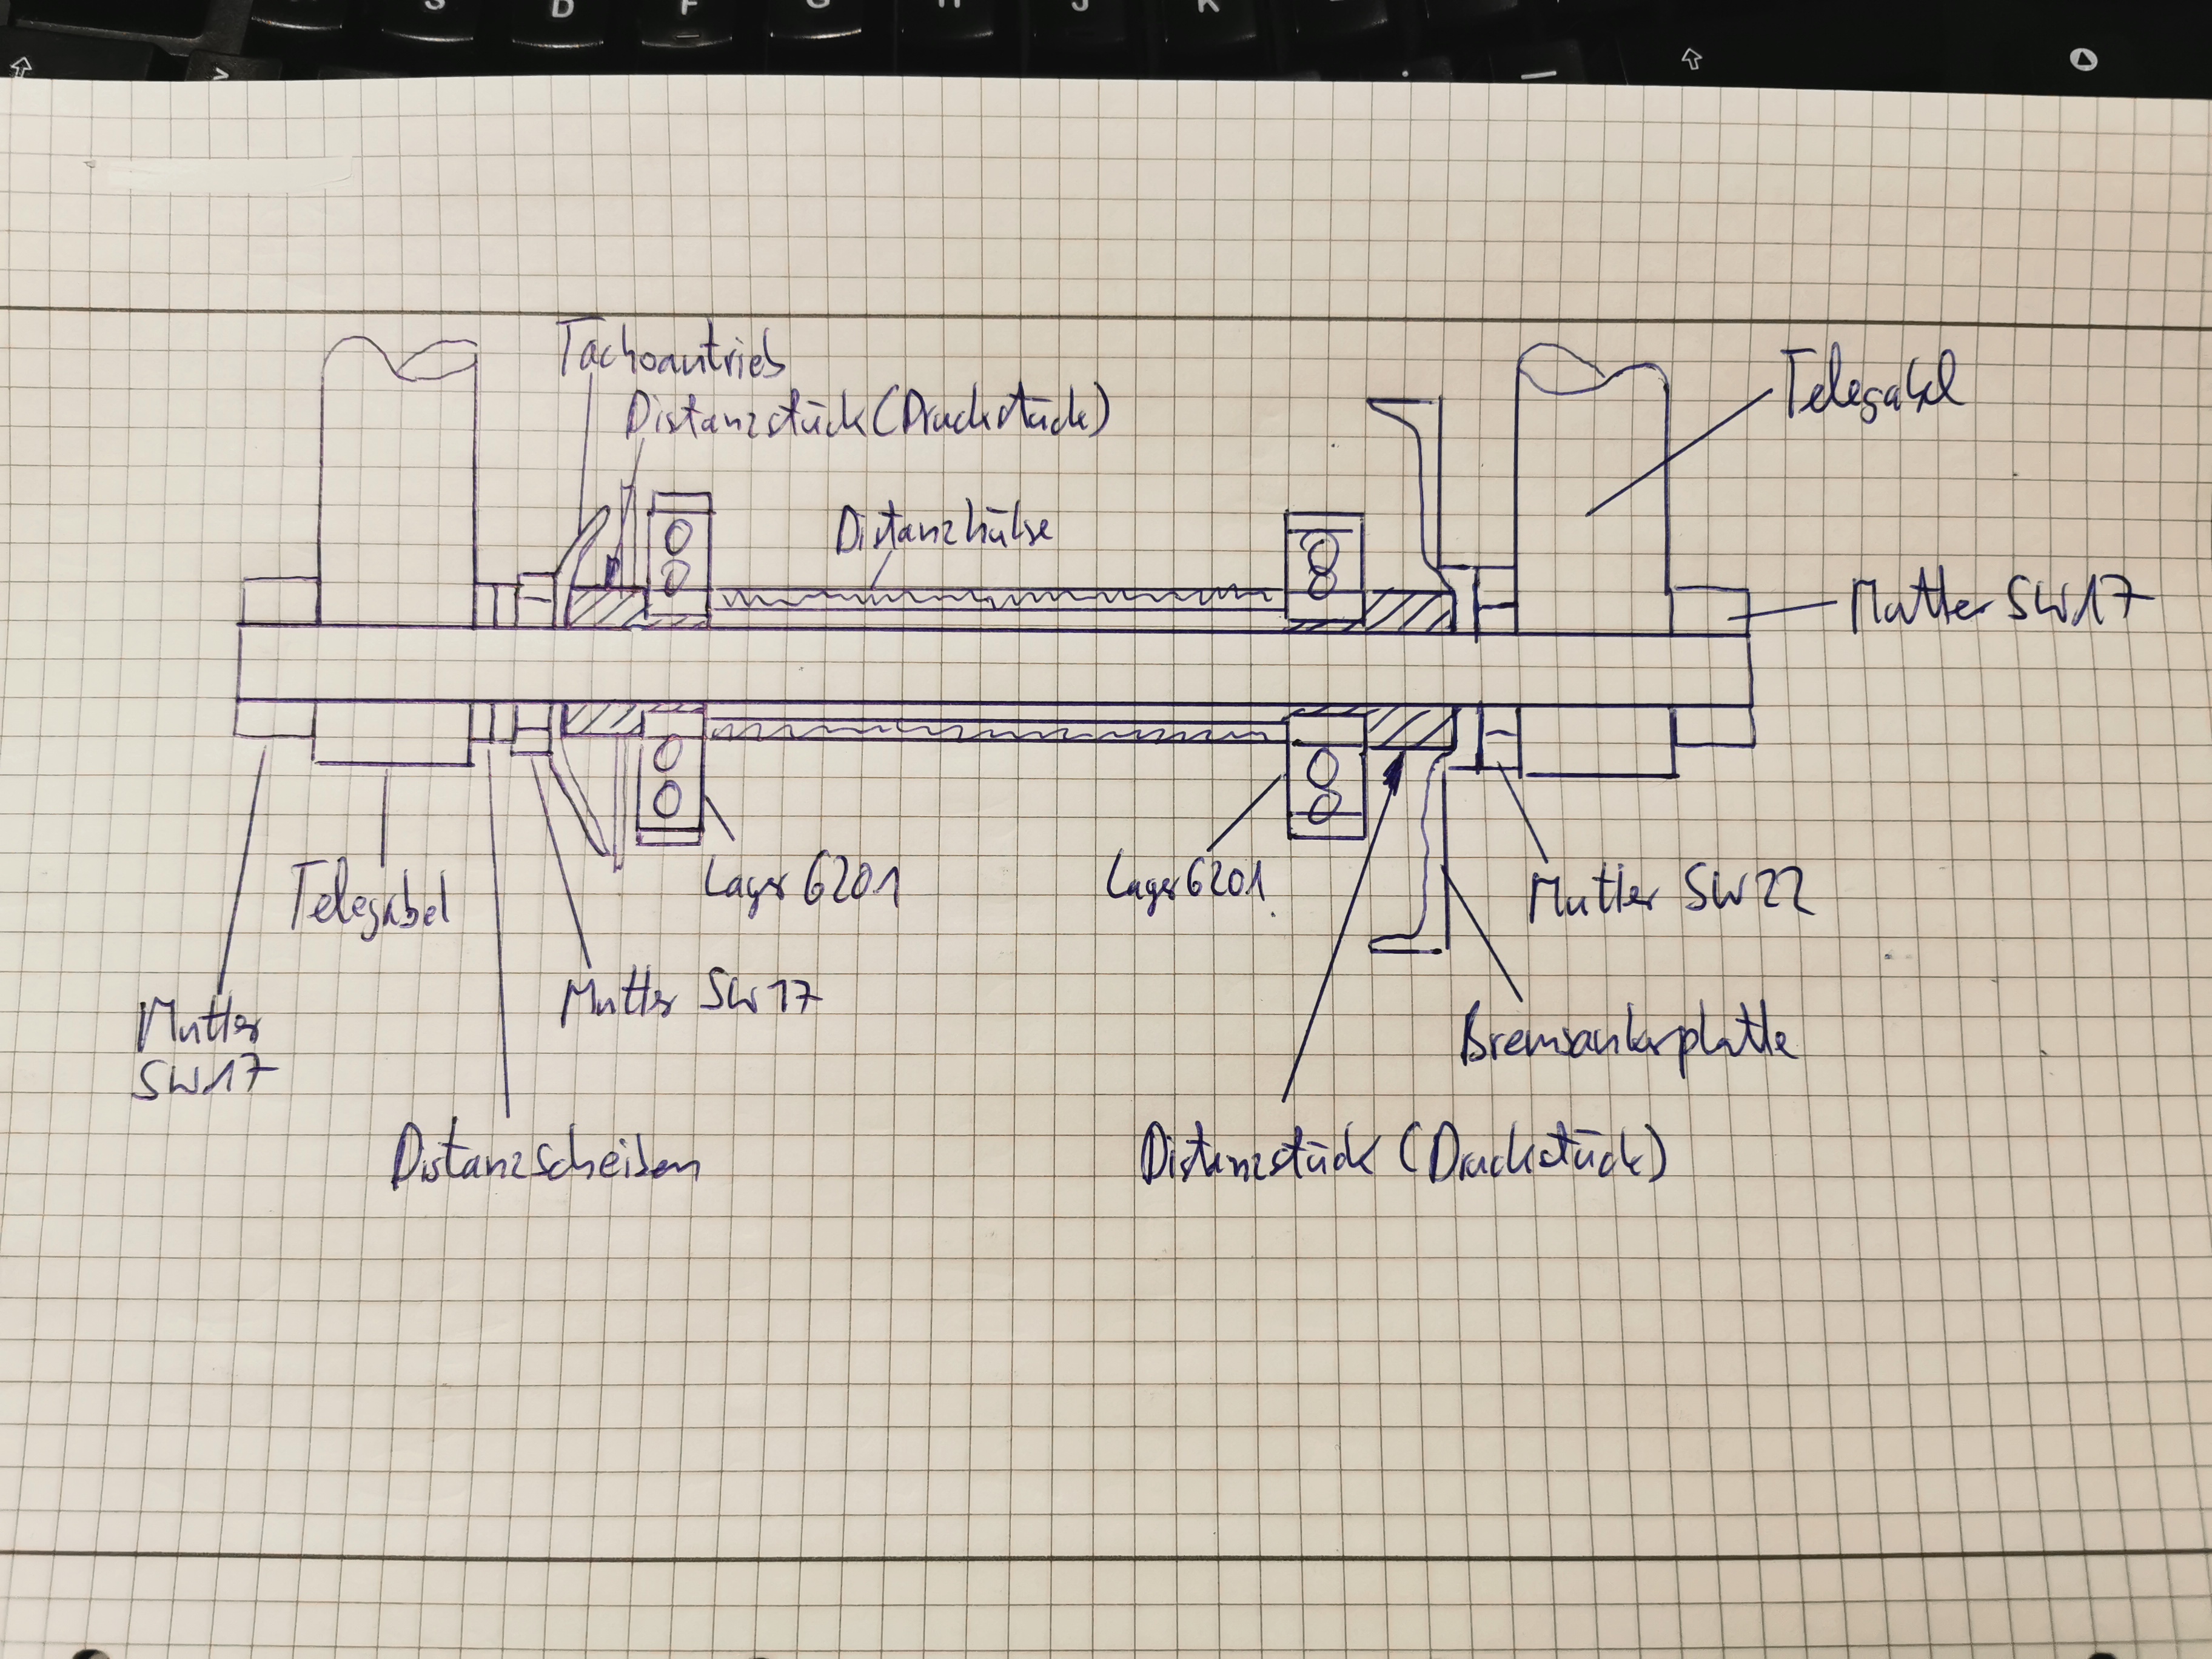 S D F G H J K
Tachoantrieb
Distanzstück (Druckstück)
Telegabel
Distanzhülse
Mutter SW17
Telegabel
Lager 6201
Lager 6201
Mutter SW22
Mutter SW17
Mutter
SW17
Bremsankerplatte
Distanzscheiben
Distanzstück (Druckstück)